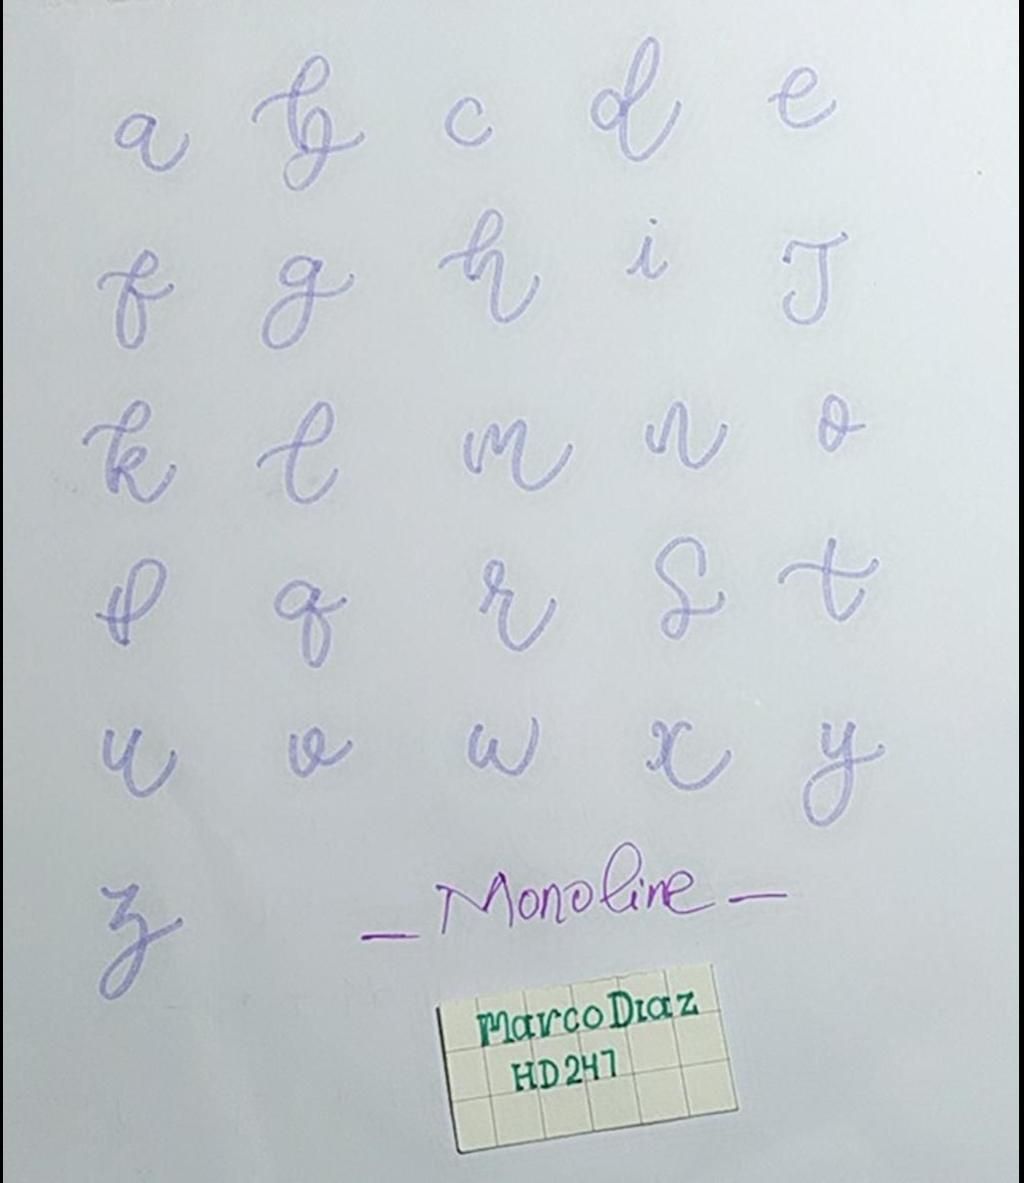 a b c d e
f g h i J
k l m n o
p q r s t
u v w x y
z
_ Monoline _
Marco Diaz
HD247